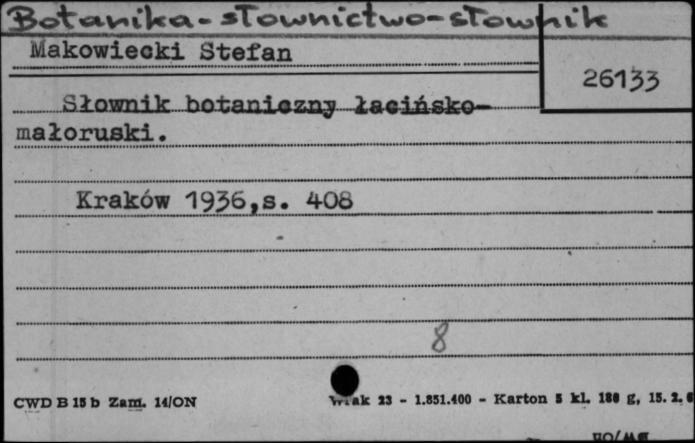 Botanika-słownictwo-słownik
Makowiecki Stefan
26133
Słownik botaniczny łacińsko-
małoruski.
Kraków 1936,s. 408
8
CWD B 15 b Zam. 14/ON
23 - 1.851.400 - Karton 5 kl. 180 g, 15. 2. 6